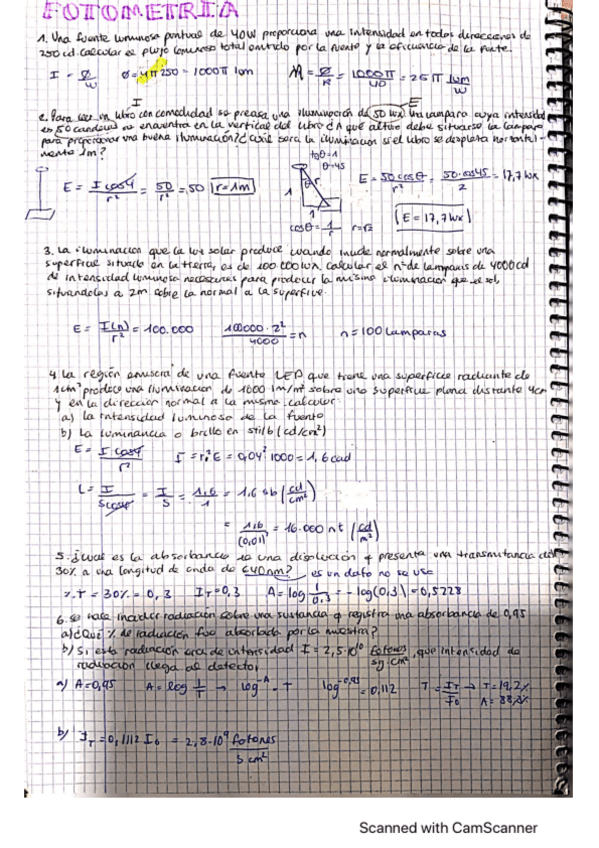 FOTOMETRIA
1. Una fuente luminosa puntual de 40W proporciona una intensidad en todas direcciones de
250 cd. calcular el flujo luminoso total emitido por la fuente y la eficiencia de la fuente.
I = Ø/W Ø = 4π 250 = 1000π lum M = Ø/R = 1000π/40 = 25π lum/W
2. Para leer un libro con comodidad se precisa una iluminación de 50 lux. Una lampara cuya intensidad
es 50 candelas se encuentra en la vertical del libro ¿A qué altura debe situarse la lampara
para proporcionar una buena iluminación? ¿cuál será la iluminación si el libro se desplaza horizontal-
mente 1m?
tgθ=1
θ=45
E = I cosφ/r² = 50/r² = 50 r=1m
E = 50 cosθ/r² = 50·cos45/2 = 17,7 lux
E = 17,7 lux
cosθ = 1/r r=√2
3. La iluminación que la luz solar produce cuando incide normalmente sobre una
superficie situada en la tierra, es de 100.000 lux. Calcular el nº de lamparas de 4000cd
de intensidad luminosa necesarias para producir la misma iluminación que el sol,
situandolas a 2m sobre la normal a la superficie.
E = I(n)/r² = 100.000 100000·2²/4000 = n n = 100 lamparas
4. La región emisora de una fuente LED que tiene una superficie radiante de
1cm² produce una iluminación de 1000 lm/m² sobre una superficie plana distante 4cm
y en la dirección normal a la misma. calcular:
a) la intensidad luminosa de la fuente
b) La luminancia o brillo en stilb (cd/cm²)
E = I cosφ/r² I = r²E = 0,04² 1000 = 1,6 cad
L = I/S cosφ = I/S = 1,6/1 = 1,6 sb (cd/cm²)
= 1,6/(0,01)² = 16.000 nt (cd/m²)
5. ¿cual es la absorbancia de una disolución q presenta una transmitancia del
30% a una longitud de onda de 640nm? es un dato no se usa
%T = 30% = 0,3 IT=0,3 A = log 1/0,3 = -log(0,3) = 0,5228
6. se hace incidir radiación sobre una sustancia q registra una absorbancia de 0,95
a) ¿Qué % de radiación fue absorbada por la muestra?
b) Si esta radiación era de intensidad I = 2,5·10¹⁰ fotones/sg·cm², que intensidad de
radiación llega al detector
a) A=0,95 A = log 1/T → log^-A = T log^-0,95 = 0,112 T = IT/I0 → T=
b) IT = 0,1112 I0 = 2,8·10⁹ fotones/s cm²
Scanned with CamScanner